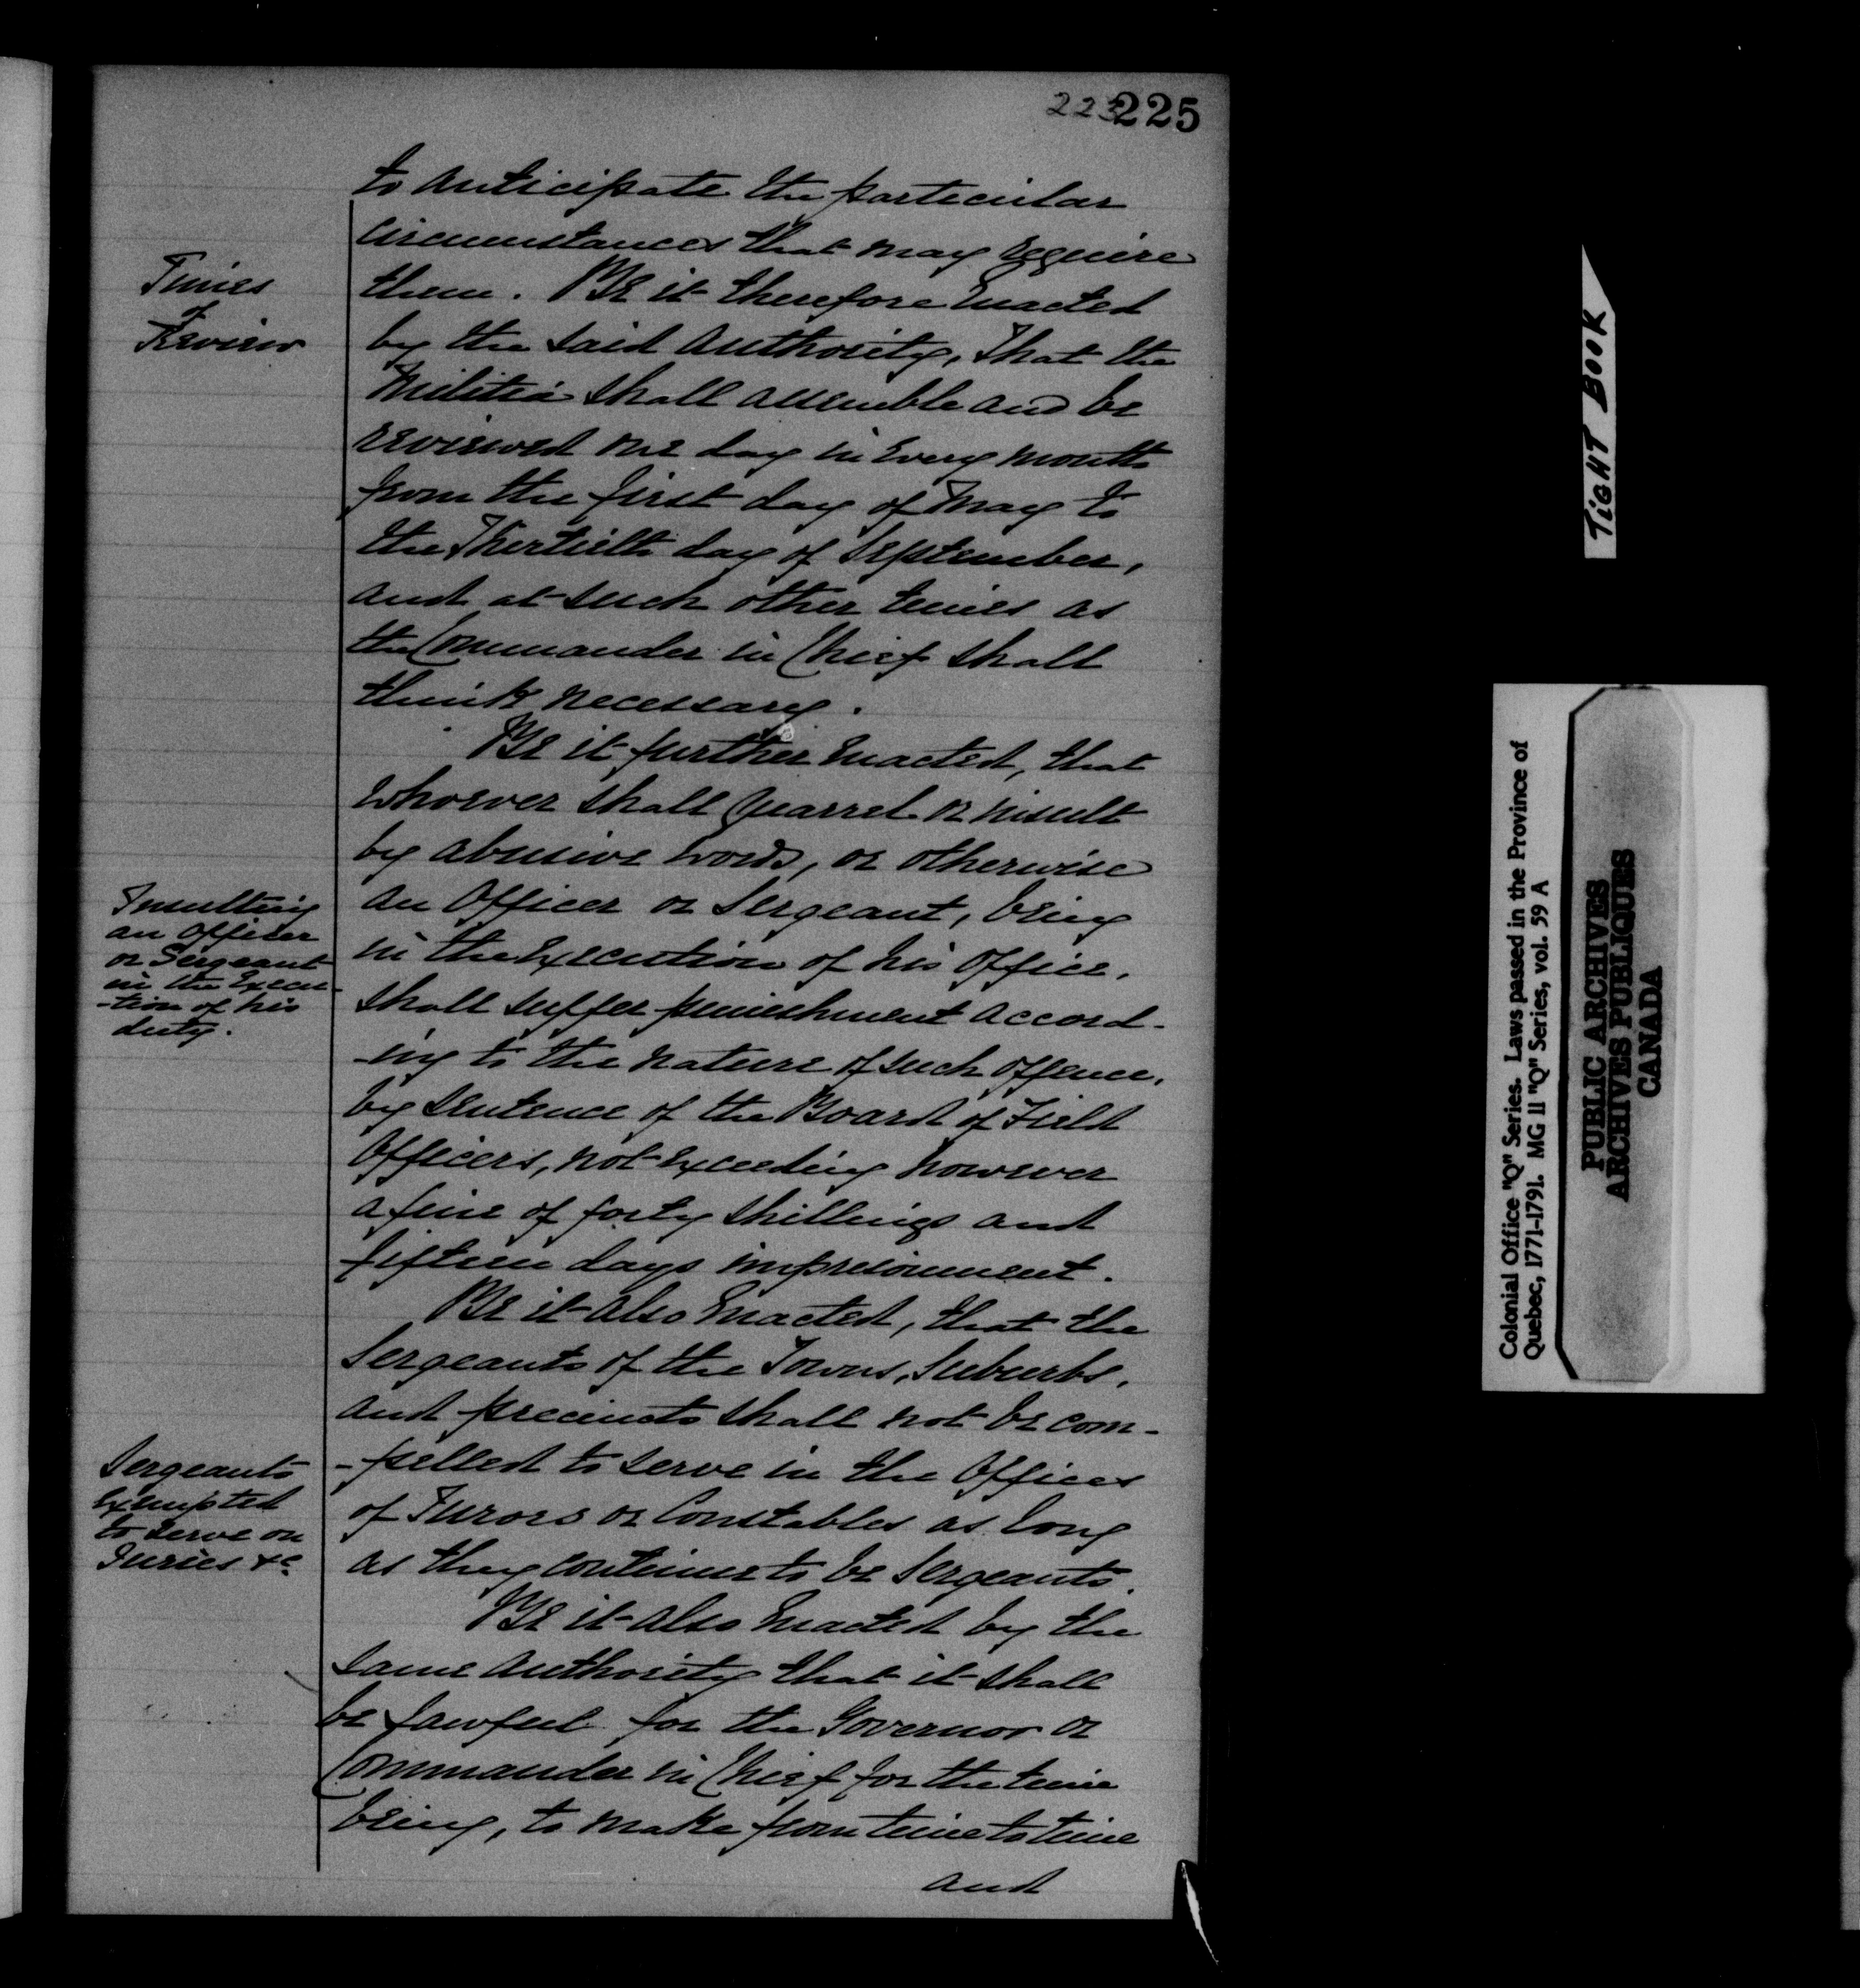 223225
to anticipate the particular
circumstances that may require
Times
of
Review
them. BE it therefore Enacted
by the Said Authority, That the
Militia shall assemble and be
reviewed one day in Every month
from the first day of May to
the Thirtieth day of September,
and at such other times as
the Commander in Chief shall
think necessary.
BE it further Enacted, that
whoever shall Quarrel or insult
by abusive words, or otherwise
Insulting
an Officer
or Sergeant
in the Execu-
-tion of his
duty.
an Officer or Sergeant, being
in the Execution of his Office,
shall suffer punishment accord-
-ing to the nature of such offence,
by sentence of the Board of Field
Officers, not Exceeding however
a fine of forty shillings and
fifteen days imprisonment.
BE it also Enacted, that the
Sergeants of the Towns, Suburbs,
and precincts shall not be com-
Sergeants
Exempted
to serve on
Juries &c.
-pelled to serve in the Offices
of Jurors or Constables as long
as they continue to be Sergeants.
BE it also Enacted by the
same authority that it shall
be lawful for the Governor or
Commander in Chief for the time
being, to make from time to time
and
TIGHT BOOK
Colonial Office "Q" Series. Laws passed in the Province of
Quebec, 1771-1791. MG 11 "Q" Series, vol. 59 A
PUBLIC ARCHIVES
ARCHIVES PUBLIQUES
CANADA